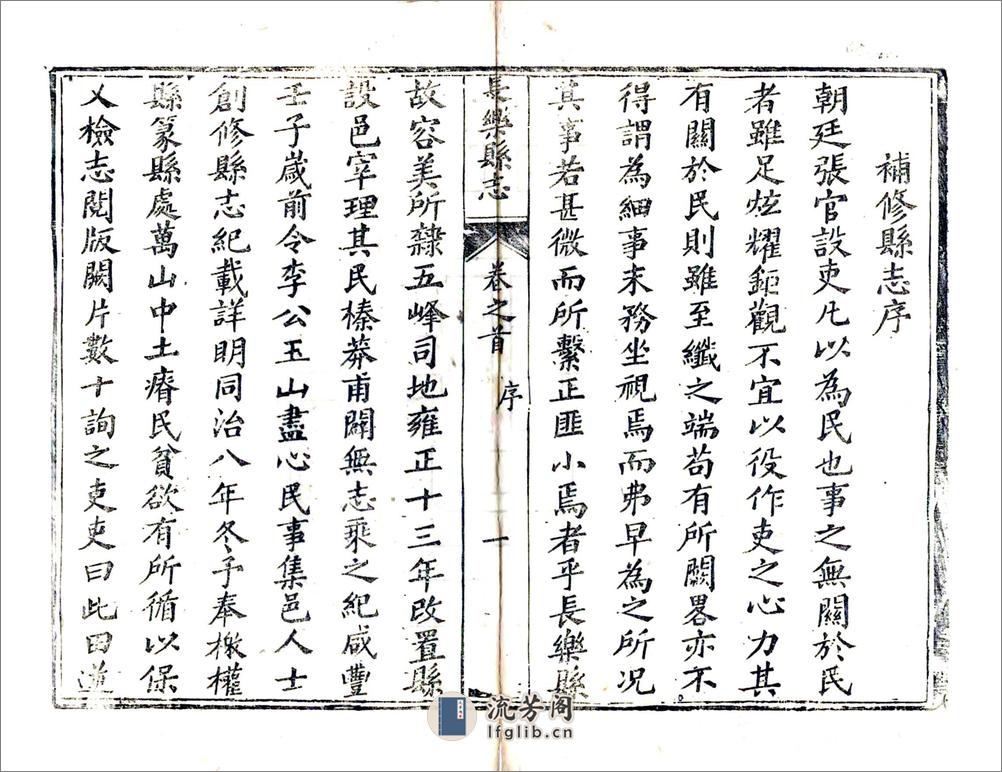 補修縣志序
朝廷張官設吏凡以為民也事之無關於民
者雖足炫耀鉅觀不宜以役作吏之心力其
有關於民則雖至纖之端苟有所闕畧亦不
得謂為細事末務坐視焉而弗早為之所况
其事若甚微而所繫正匪小焉者乎長樂縣
長樂縣志
卷之首
序
一
故容美所隸五峰司地雍正十三年改置縣
設邑宰理其民榛莽甫闢無志乘之紀咸豐
壬子歲前令李公玉山盡心民事集邑人士
創修縣志紀載詳明同治八年冬予奉檄權
縣篆縣處萬山中土瘠民貧欲有所循以保
乂檢志閱版闕片數十詢之吏吏曰此因道
流芳阁
lfglib.cn